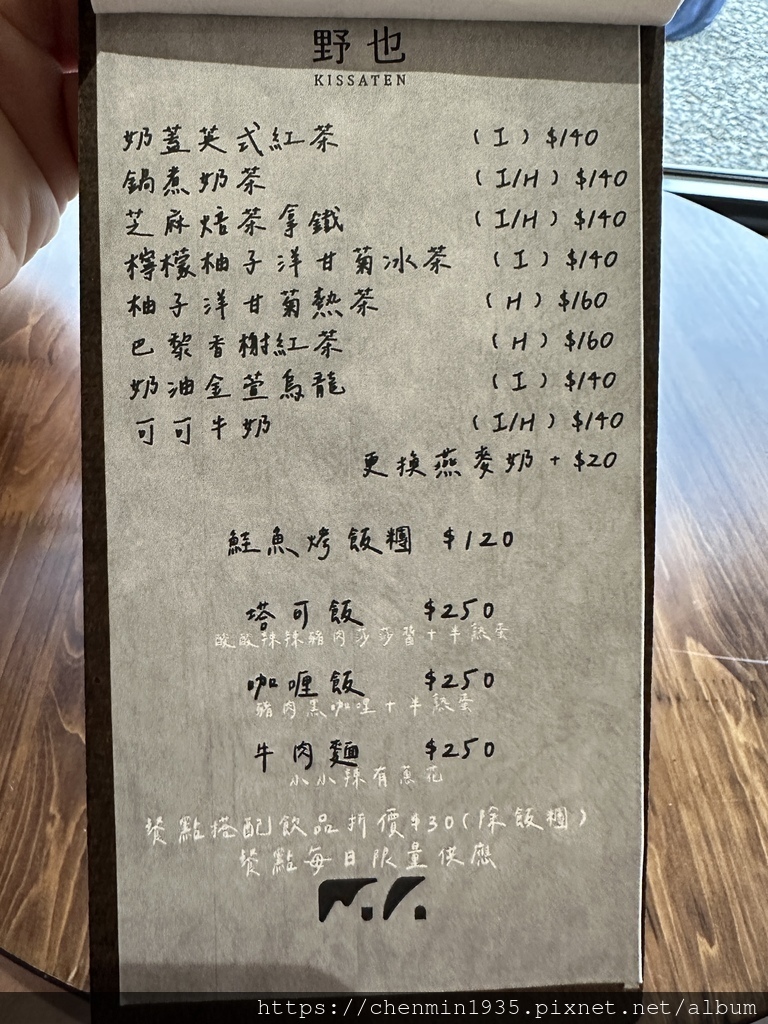 野也
KISSATEN
奶蓋英式紅茶 (I) $140
鍋煮奶茶 (I/H) $140
芝麻焙茶拿鐵 (I/H) $140
檸檬柚子洋甘菊冰茶 (I) $140
柚子洋甘菊熱茶 (H) $160
巴黎香榭紅茶 (H) $160
奶油金萱烏龍 (I) $140
可可牛奶 (I/H) $140
更換燕麥奶 + $20
鮭魚烤飯糰 $120
塔可飯 $250
酸酸辣辣豬肉莎莎醬+半熟蛋
咖哩飯 $250
豬肉黑咖哩+半熟蛋
牛肉麵 $250
小小辣有蔥花
餐點搭配飲品折價$30(除飯糰)
餐點每日限量供應
https://chenmin1935.pixnet.net/album